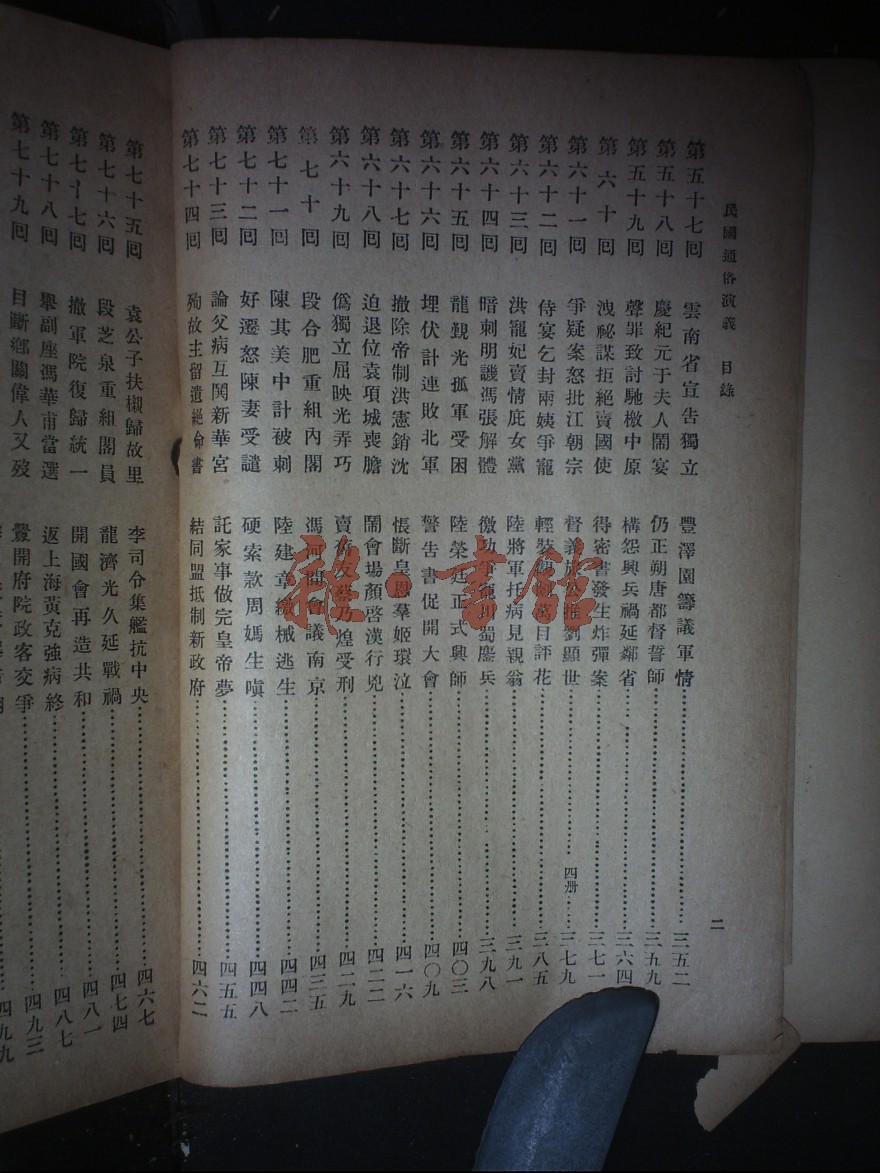 民國通俗演義 目錄 二
第五十七囘 雲南省宣告獨立 豐澤園籌議軍情……三五二
第五十八囘 慶紀元于夫人鬧宴 仍正朔唐都督誓師……三五九
第五十九囘 聲罪致討馳檄中原 構怨興兵禍延鄰省……三六四
第六十囘 洩祕謀拒絕賣國使 得密書發生炸彈案……三七一
第六十一囘 爭疑案怒批江朝宗 督義旅公推劉顯世……四册……三七九
第六十二囘 侍宴乞封兩姨爭寵 輕裝萬目評花……三八五
第六十三囘 洪寵妃賣情庇女黨 陸將軍托病見親翁……三九一
第六十四囘 暗刺明譏馮張解體 徼功爭寵川蜀鏖兵……三九八
第六十五囘 龍覲光孤軍受困 陸榮廷正式興師……四〇三
第六十六囘 埋伏計連敗北軍 警告書促開大會……四〇九
第六十七囘 撤除帝制洪憲銷沈 悵斷皇恩羣姬環泣……四一六
第六十八囘 迫退位袁項城喪膽 鬧會場顏啓漢行兇……四二二
第六十九囘 僞獨立屈映光弄巧 賣舊友蔡乃煌受刑……四二九
第七十囘 段合肥重組內閣 馮河間會議南京……四三五
第七十一囘 陳其美中計被刺 陸建章繳械逃生……四四二
第七十二囘 好遷怒陳妻受譴 硬索款周媽生嗔……四四八
第七十三囘 論父病互鬩新華宮 託家事做完皇帝夢……四五五
第七十四囘 殉故主留遺絕命書 結同盟抵制新政府……四六二
第七十五囘 袁公子扶櫬歸故里 李司令集艦抗中央……四六七
第七十六囘 段芝泉重組閣員 龍濟光久延戰禍……四七四
第七十七囘 撤軍院復歸統一 開國會再造共和……四八一
第七十八囘 舉副座馮華甫當選 返上海黃克強病終……四八七
第七十九囘 目斷鄉關偉人又歿 釁開府院政客交爭……四九三
四九九
雜·書館